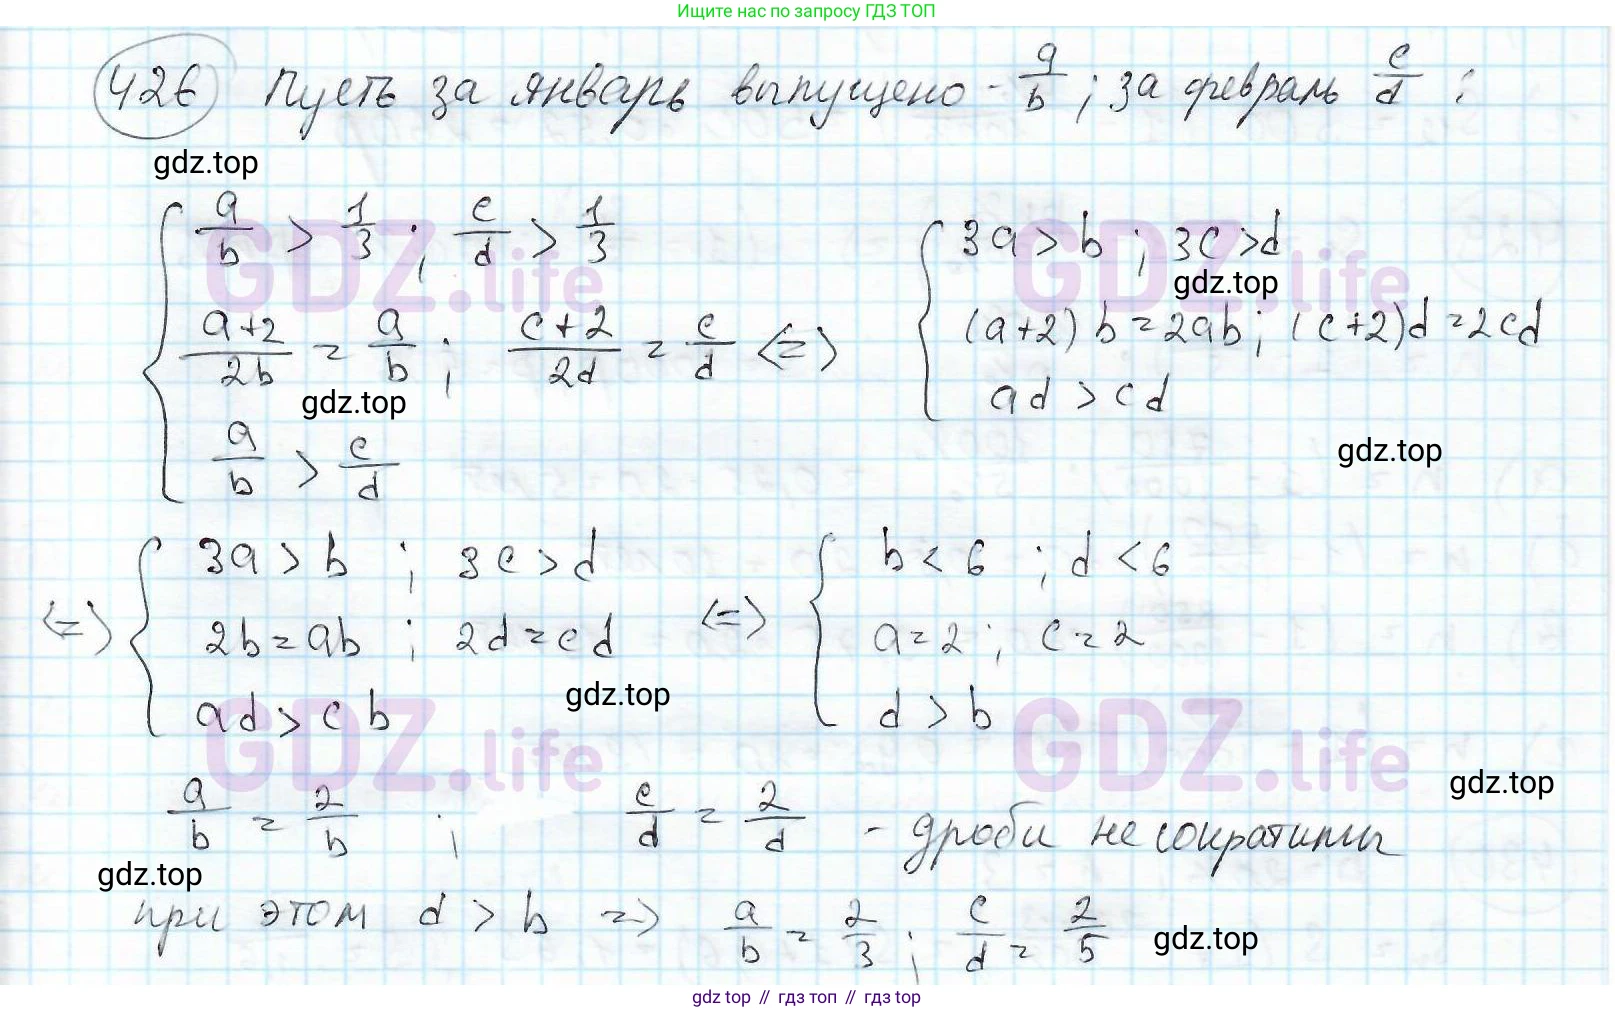 Ищите нас по запросу ГДЗ ТОП
426 Пусть за январь выпущено - a/b ; за февраль c/d ;
gdz.top
{ a/b > 1/3 ; c/d > 1/3
(a+2)/2b = a/b ; (c+2)/2d = c/d <=>
gdz.top
a/b > c/d
{ 3a > b ; 3c > d
gdz.top
(a+2)b = 2ab ; (c+2)d = 2cd
ad > cd
gdz.top
GDZ.life
GDZ.life
<=> { 3a > b ; 3c > d
2b = ab ; 2d = cd
gdz.top
ad > cb
<=> { b < 6 ; d < 6
a = 2 ; c = 2
d > b
GDZ.life
GDZ.life
gdz.top
a/b = 2/b ; c/d = 2/d - дроби не сократимы
gdz.top
при этом d > b => a/b = 2/3 ; c/d = 2/5
gdz.top
gdz top // гдз топ // гдз top